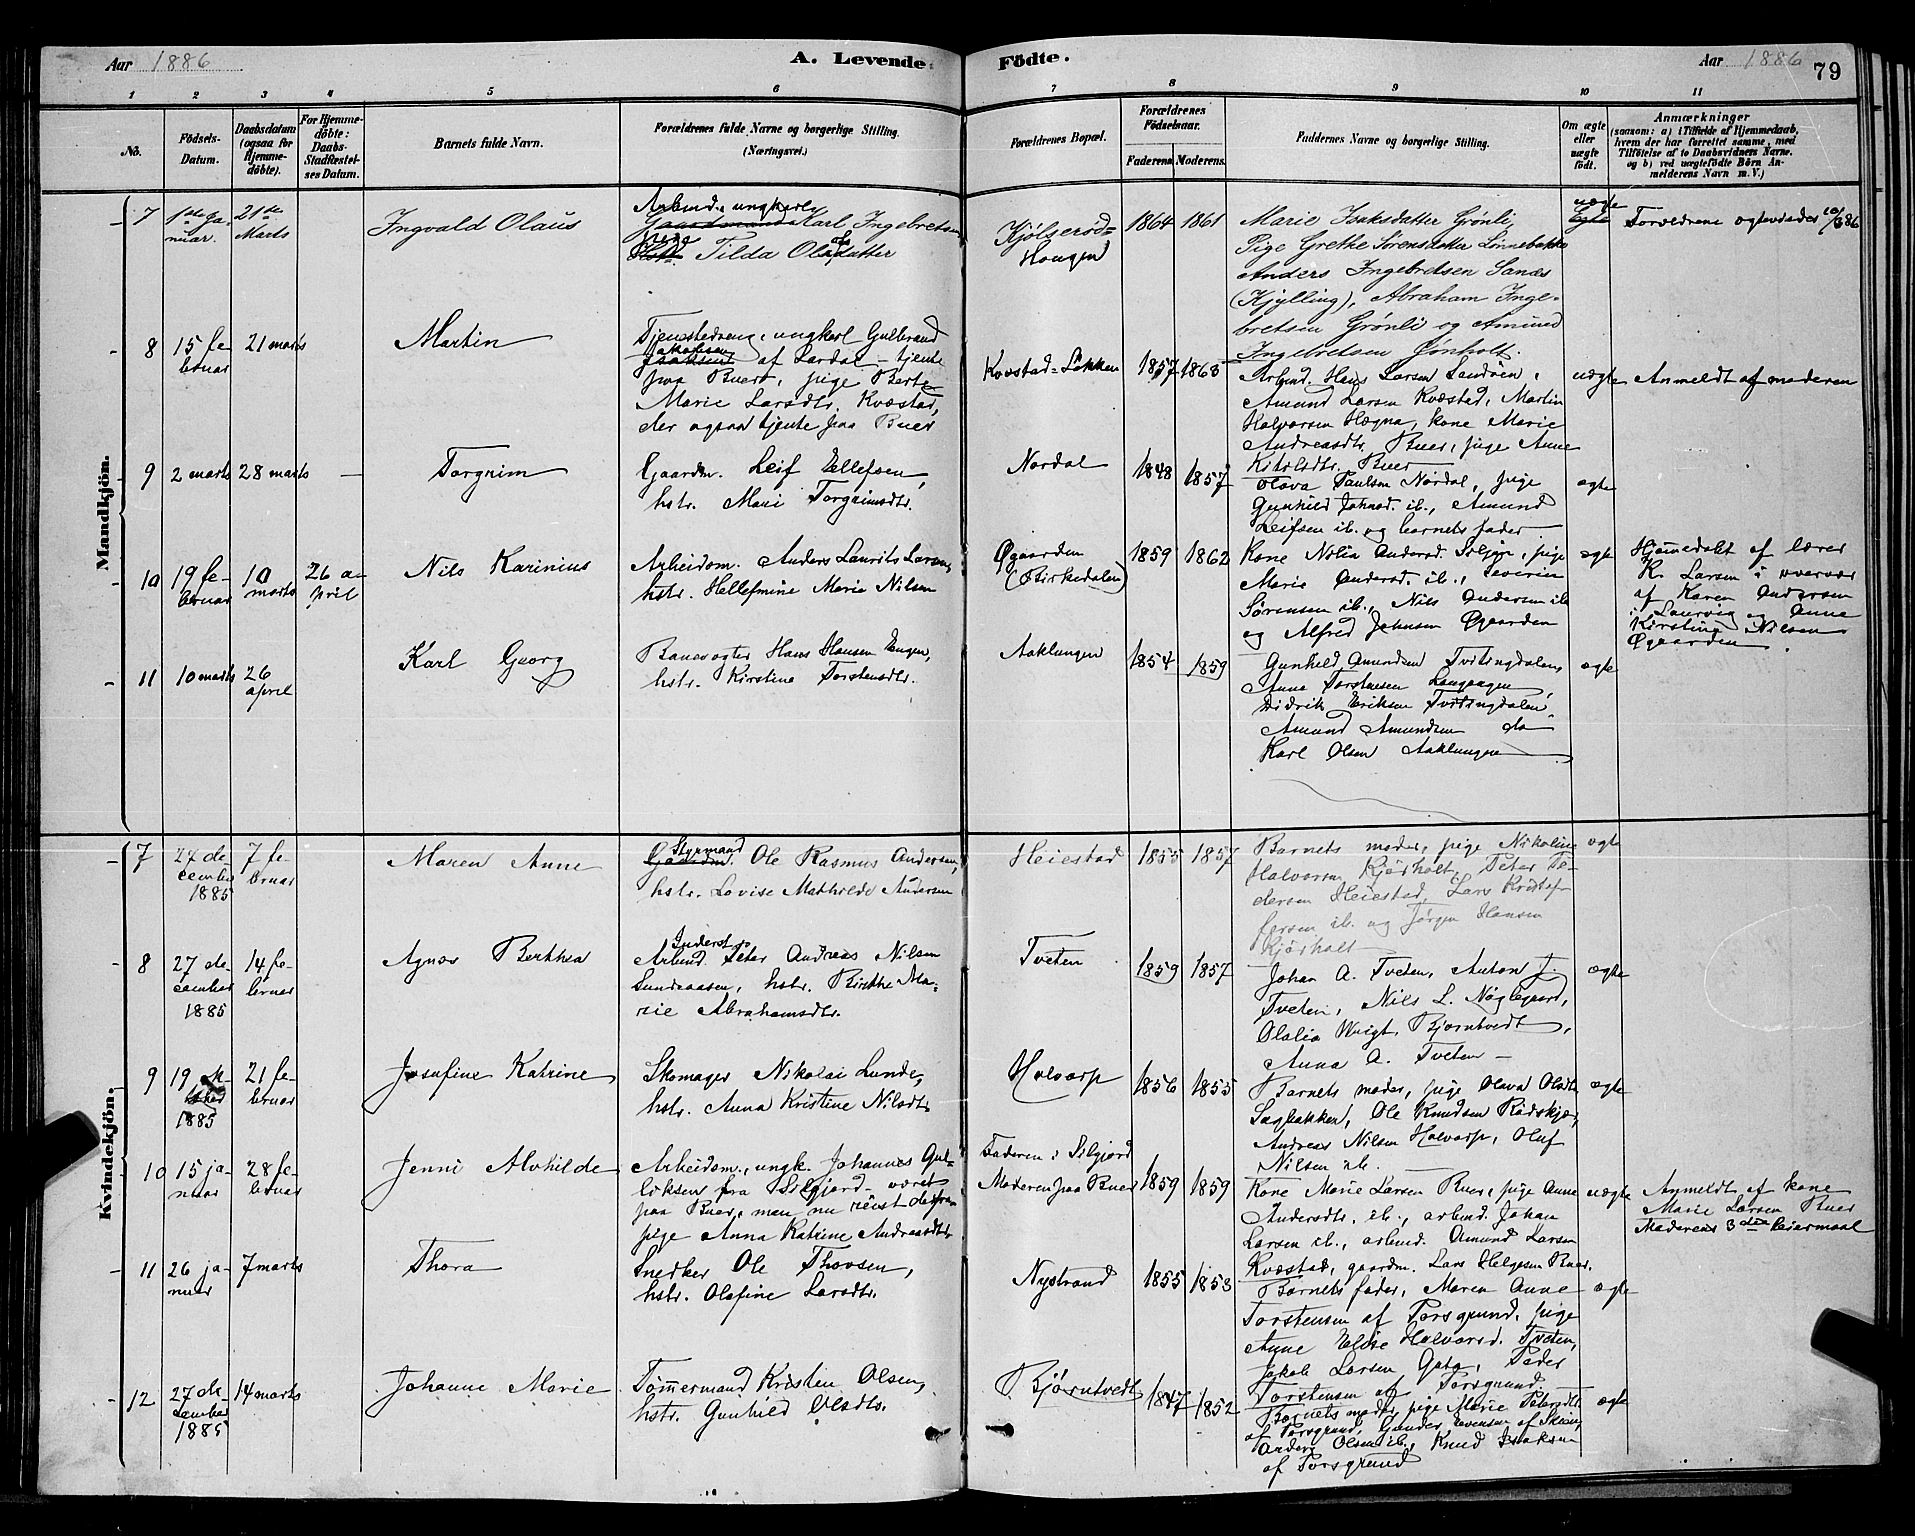 Aar 1886
A. Levende
Fødte.
Aar 1886
79
1 2 3 4 5 6 7 8 9 10 11
No.
Fødsels-Datum.
Daabsdatum (ogsaa for Hjemme-døbte).
For Hjemme-døbte: Daabs-Stadfæstel-ses Datum.
Barnets fulde Navn.
Forældrenes fulde Navne og borgerlige Stilling. (Næringsvei.)
Forældrenes Bopæl.
Forældrenes Fødselsaar.
Faderens Moderens.
Faddernes Navne og borgerlige Stilling.
Om ægte eller uægte født.
Anmærkninger
(saasom: a) i Tilfælde af Hjemmedaab, hvem der har forrettet samme, med Tilføielse af to Daabsvidners Navne, og b) ved uægtefødte Børn An-melderens Navn m. V.)
Mandkjön.
7
1ste Ja-
nuar.
21de
Marts
Ingvald Olaus
Arbeid. ungkarl
Gaardmand Karl Ingebretsen
pige
Hstr. Tilda Olsdatter
Kjølserød=
Haugen
1864 1861
Marie Isaksdatter Grønli
Pige Grethe Sørensdatter Lønnebakke
Anders Ingebretsen Sanes
(Kjylling), Abraham Inge-
bretsen Grønli og Amund
Ingebretsen Gønholt.
uægte
ægte
Forældrene ægteviedes 10/3 86
8
15 fe-
bruar
21 marts
Martin
Tjenestedreng, ungkarl Gulbrand
Jakobsen
Isaksen af Lardal - tjente
paa Buer, pige Berte
Marie Larsdtr. Kvæstad,
der ogsaa tjente paa Buer
Kvæstad=Løkken
1857 1863
Arbmd. Hans Larsen Sandøen,
Amund Larsen Kvæstad, Martin
Halvorsen Hægna, kone Marie
Andreasdtr. Buer, pige Anne
Kitilsdtr. Buer
uægte
Anmeldt af moderen
9
2 marts
28 marts
—
Torgrim
Gaardm. Leif Ellefsen,
hstr. Mari Torgrimsdtr.
Nordal
1848 1857
Olava Paulsen Nordal, pige
Gunhild Johnsd. ib., Amund
Leifsen ib. og barnets fader
ægte
10
19 fe-
bruar
10
marts
26 a-
pril
Nils Karinius
Arbeidsm. Anders Laurits Larsen,
hstr. Hellefmine Marie Nilsen
Øgaarden
(Birkedalen)
1859 1862
Kone Nolia Andersd. Siljan, pige
Marie Andersd. ib., Severin
Sørensen ib., Nils Andersen ib.
og Alfred Johnsen Øgaarden
ægte
Hjemedøbt af lærer
K. Larsen i overvær
af Karen Andersen
i Laurvig og Anne
Kirstine Nilsen
Øgaarden.
11
10 marts
26
april
Karl Georg
Banevogter Hans Hansen Engen,
hstr. Kirstine Torstensdtr.
Aaklungen
1854 1859
Gunhild Amundsen Tvitingdalen,
Anne Torstensen Langangen,
Didrik Eriksen Tvitingdalen,
Amund Amundsen do
Karl Olsen Aaklungen
ægte
Kvindekjön.
7
24 de-
cember
1885
7 fe-
bruar
Maren Anne
Styrmand
Gaardm. Ole Rasmus Andersen,
hstr. Lovise Mathilde Andersen
Heiestad
1855 1857
Barnets moder, pige Nikoline
Halvorsen Kjørholt, Peter Pe-
dersen Heiestad, Lars Kristof-
fersen ib. og Jørgen Hansen
Kjørholt
ægte
8
27 de-
cember
1885
14 fe-
bruar
Agnes Berthea
Inderst,
Arbmd. Peter Andreas Nilsen
Sundsaasen, hstr. Birthe Ma-
rie Abrahamsdtr.
Tveten
1859 1857
Johan A. Tveten, Anton J.
Tveten, Nils L. Nøglegaard,
Olalia Weigt. Bjørntvedt,
Anna A. Tveten —
ægte
9
19
1885
21 fe-
bruar
Josefine Katrine
Skomager Nikolai Lunde,
hstr. Anna Kristine Nilsdtr.
Halvarp
1856 1855
Barnets moder, pige Olava Olsdtr.
Sagbakken, Ole Knudsen Rødskjær,
Andreas Nilsen Halvarp, Oluf
Nilsen ib.
ægte
10
15 ja-
nuar
28 fe-
bruar
Jenni Alvhilde
Arbeidsm., ungk. Johannes Gul-
liksen fra Silgjord - været
paa Buer, men nu reist derfra
pige Anna Katrine Andreasdtr.
Faderen i Silgjord
Moderen paa Buer
1859 1859
Kone Marie Larsen Buer, pige Anne
Andersdtr. ib., arbmd. Johan
Larsen ib., arbmd. Amund Larsen
Kvæstad, gaardm. Lars Helgesen Buer.
uægte
Anmeldt af kone
Marie Larsen Buer
Moderens 3die leiermaal
11
26 ja-
nuar
7 marts
Thora
Snedker Ole Thovsen,
hstr. Olefine Larsdtr.
Nystrand
1855 1853
Barnets fader, Maren Anne
Torstensen af Porsgrund, pige
Anne Elise Halvorsd. Tveten,
Jakob Larsen Gata, Peder
Torstensen af Porsgrund.
ægte
12
27 de-
cember
1885
14 marts
Johanne Marie
Tømmermand Kristen Olsen,
hstr. Gunhild Olsdtr.
Bjørntvedt
1847 1852
Barnets moder, pige Marie Petersdtr.
af Porsgrund, Gunder Evensen af Skien,
Anders Olsen ib., Knud Isaksen
af Porsgrund
ægte